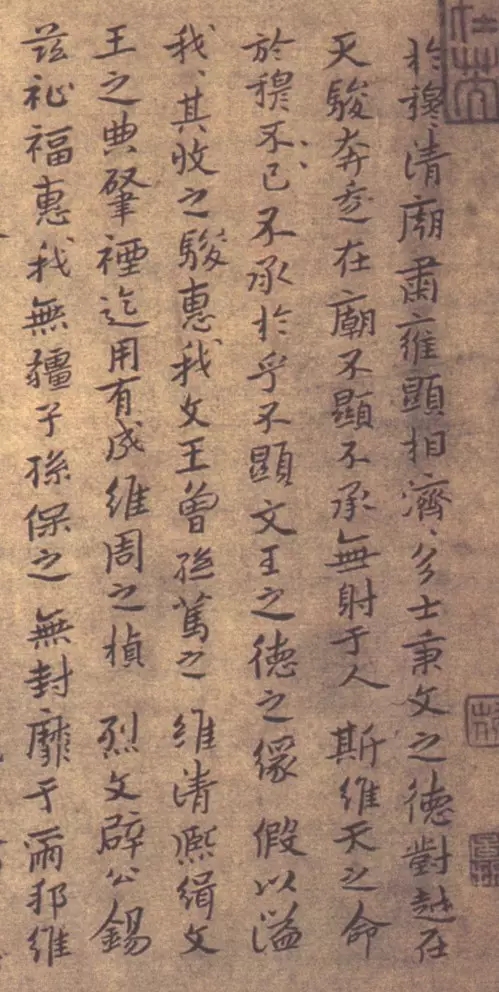 於穆、清廟肅、雍顯相濟、多士秉文之德對越在
天駿奔走在廟不顯不承無射于人 斯維天之命
於穆不已不承於乎不顯文王之德之 假以溢
我、其收之駿惠我文王曾孫篤之 維清熙緝文
王之典肇禋迄用有成維周之楨 烈文辟公錫
茲祉福惠我無疆子孫保之 無封靡于爾邦維